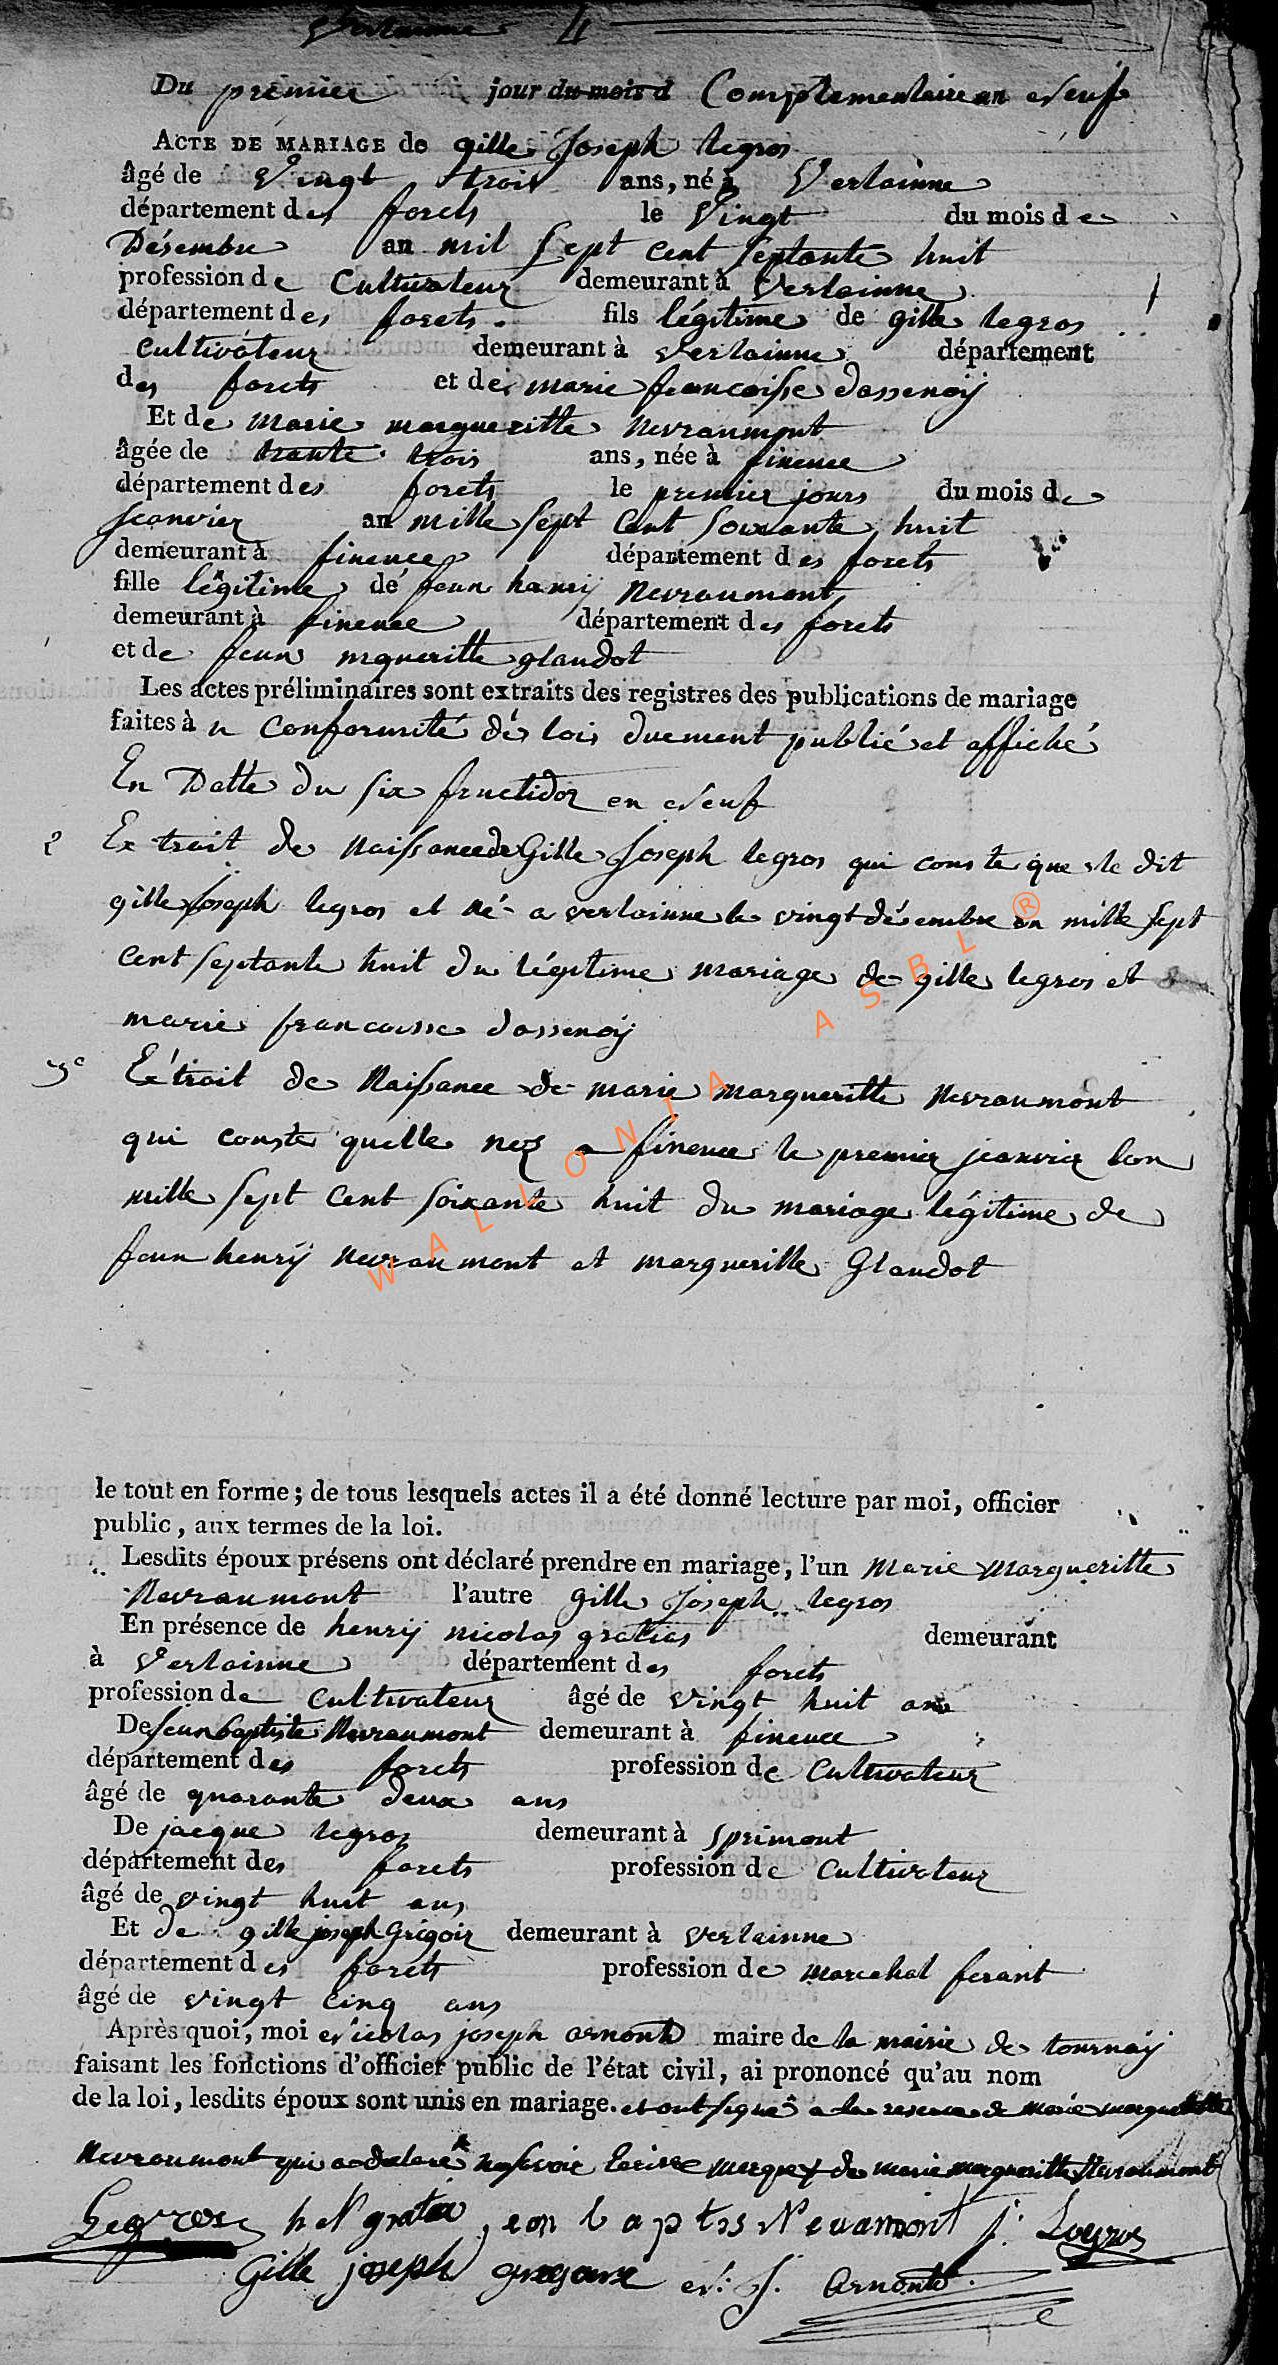 Verlainne 4
Du premier jour du mois d Complementaire an neuf
ACTE DE MARIAGE de gille Joseph legros
âgé de Vingt trois ans, né à Verlainne
département des forets le Vingt du mois de
Désembre an mil sept cent septante huit
profession de Cultivateur demeurant à Verlainne
département des forets. fils légitime de gille legros
cultivateur demeurant à Verlainne département
des forets et de marie francoisse dossenoij
Et de marie margueritte Nevraumont
âgée de trante trois ans, née à finence
département des forets le premier jours du mois de
Jeanvier an mille sept Cent soixante huit
demeurant à finence département des forets
fille légitime de feun hanrij Nevraumont
demeurant à finence département des forets
et de feun mgueritte glaudot
Les actes préliminaires sont extraits des registres des publications de mariage
faites à n Conformité dé lois duement publié et affiché
En Datte du six fructidor en neuf
2 Extrait de Naissance de Gille Joseph legros qui conste que le dit
gille Joseph legros et né a verlainne le vingt désembre an mille sept
cent septante huit du légitime mariage de gille legros et
marie francoisse dossenoij
3e Extrait de Naissance de marie margueritte Nevraumont
qui conste quelle nez a finence le premier jeanvier lan
mille sept cent soixante huit du mariage légitime de
feun henrij Nevraumont et margueritte Glaudot
WALLONIA ASBL ®
le tout en forme; de tous lesquels actes il a été donné lecture par moi, officier
public, aux termes de la loi.
Lesdits époux présens ont déclaré prendre en mariage, l'un Marie Margueritte
Nevraumont l'autre gille Joseph legros
En présence de henrij nicolas gratias demeurant
à Verlainne département des forets
profession de cultivateur âgé de vingt huit ans
De Jean baptiste Nevraumont demeurant à finence
département des forets profession de Cultivateur
âgé de quarante deux ans
De jacque legros demeurant à Sprimont
département des forets profession de Cultivateur
âgé de vingt huit ans
Et de gille joseph Grégoir demeurant à Verlainne
département des forets profession de marechal ferant
âgé de vingt cinq ans
Après quoi, moi nicolas joseph arnould maire de la mairie de tournaij
faisant les fonctions d'officier public de l'état civil, ai prononcé qu'au nom
de la loi, lesdits époux sont unis en mariage. et ont signé a la reserve de marie margueritte
Nevraumont qui a declaré nessavoir Ecrire merque + de marie margueritte Nevraumont
Legros h N gratia jean baptis Nevramont j: Legros
Gille joseph gregoire N: J. Arnould